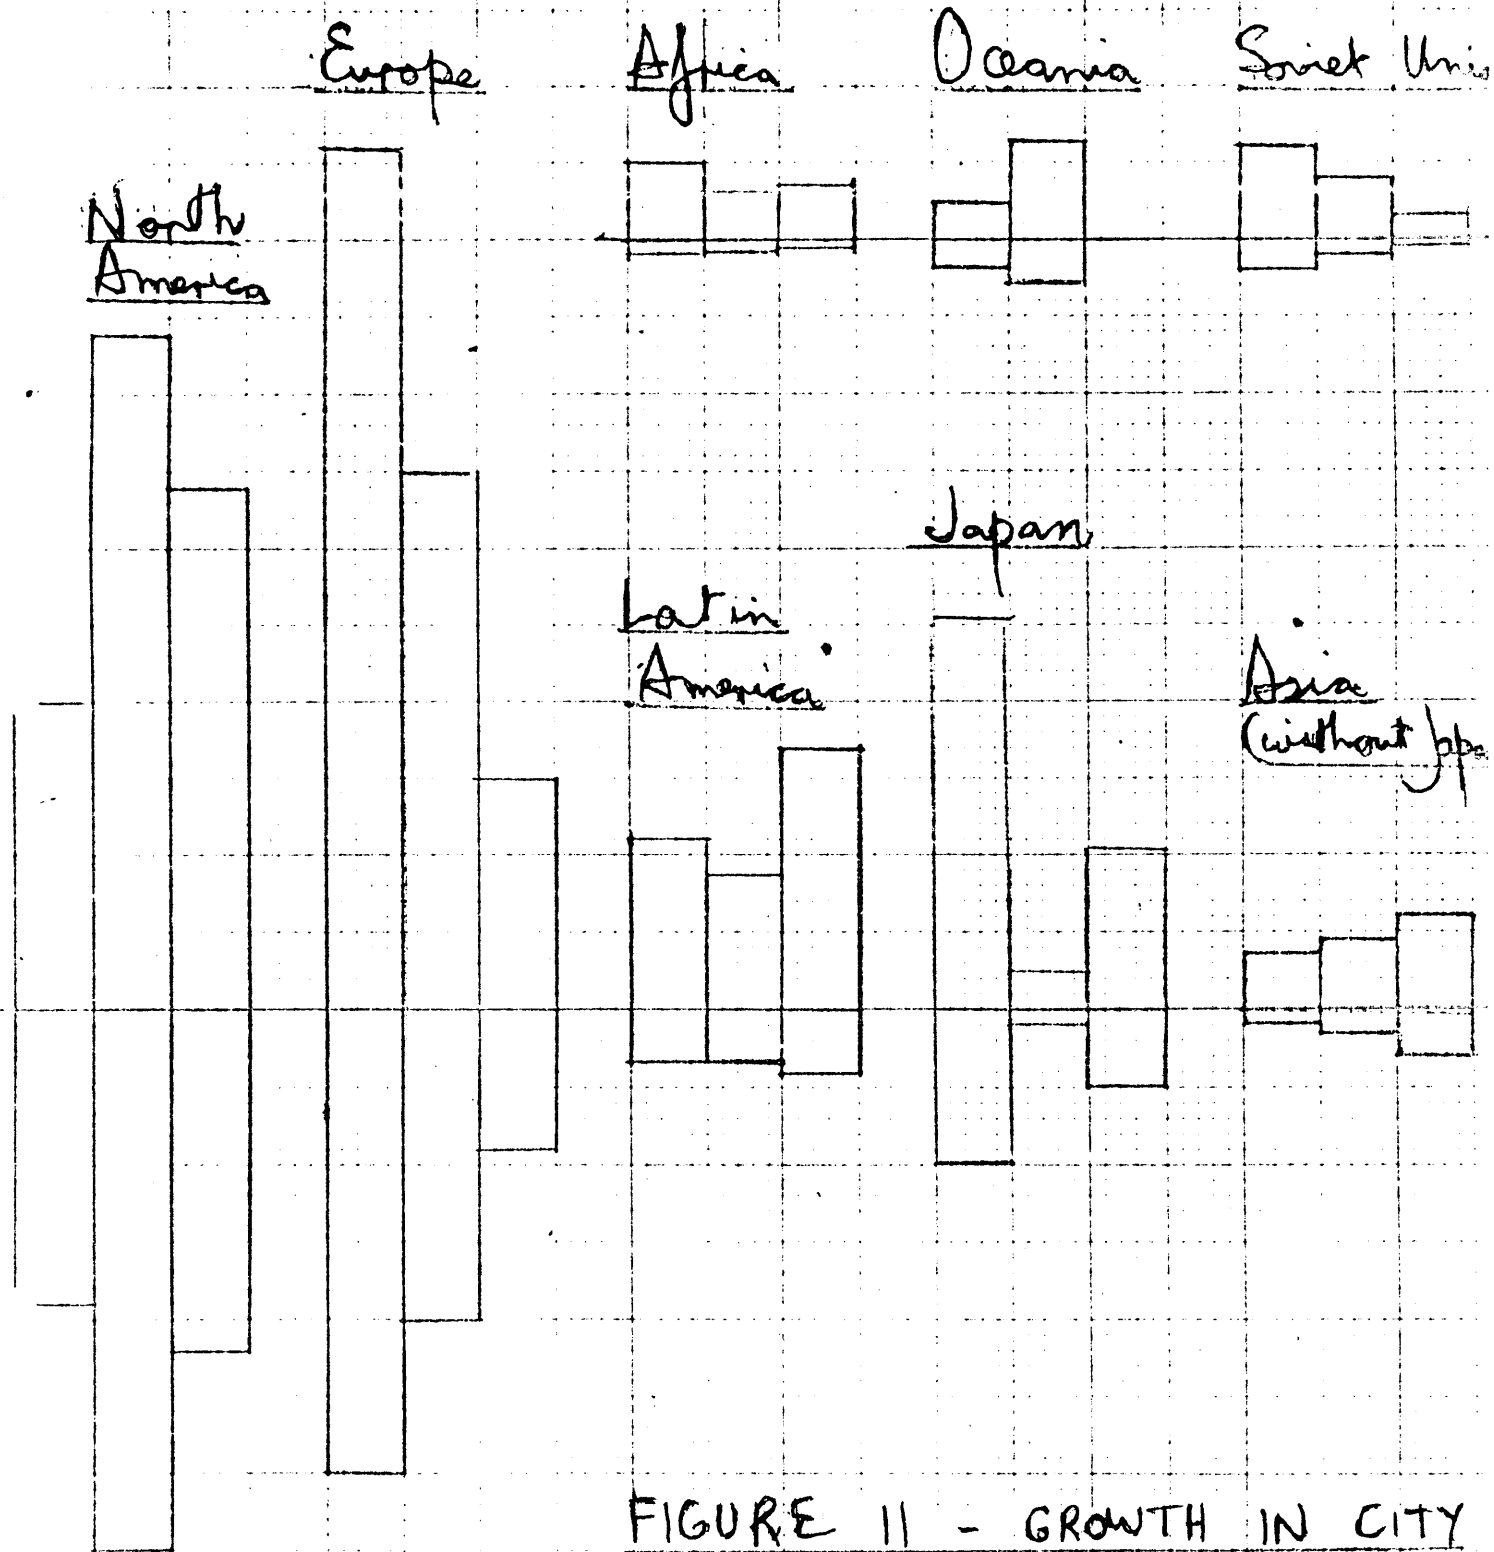 Europe
Africa
Oceania
Soviet
North
America
Japan
Latin
America
Asia
(without
FIGURE 11 - GROWTH IN CITY